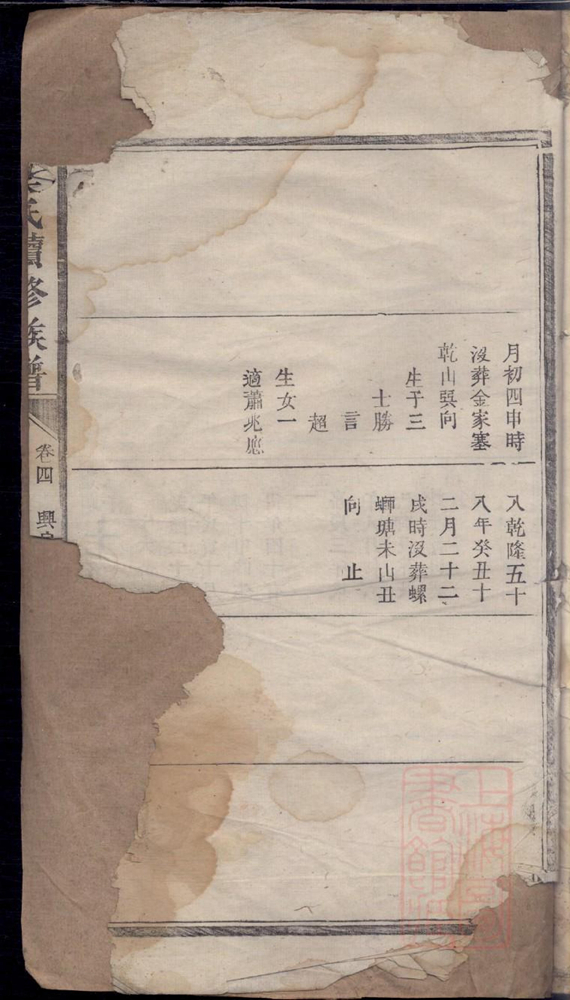 月初四申時
沒葬金家塞
乾山巽向
生子三
士勝
言
超
生女一
適蕭兆應
乾隆五十
八年癸丑十
二月二十二
戌時沒葬螺
螄塘未山丑
向 止
氏續修族譜
卷四 興